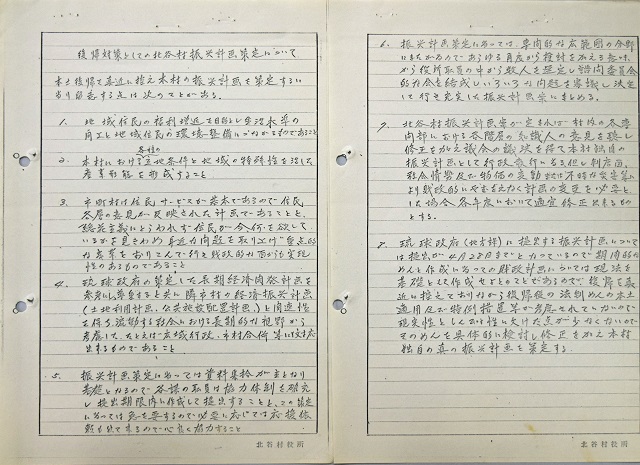 復帰対策としての北谷村振興計画策定について
本土復帰を真近に控え本村の振興計画を策定するに
当り留意する点は次のことがある。
1. 地域住民の福利増進を目的とし生活水準の
向上と地域住民の環境整備につながるものであること
2. 本村における立地条件と地域の特殊性を活した
産業形態を形成すること
3. 市町村は住民サービスが基本であるので住民
各層の意見が反映された計画であること
総花主義にとらわれず住民が今何を欲して
いるかを見きわめ身近な問題を取り上げ重点的
な産業をおりこんで行き財政的な面から実現
性のあるものであること
4. 琉球政府の策定した長期経済開発計画を
参考にし尊重すると共に隣市村の経済振興計画
(土地利用計画、公共施設配置計画)と関連性
を保ち流動する社会における長期的な視野から
考慮した、たとえば広域行政、市村合併等に対応
出来るものであること
5. 振興計画策定にあっては資料集拾が主となり
基礎となるので各課の職員は協力体制を確立
し提出期限内に作成して提出すること、この策定
にあっては急を要するので必要に応じては応援体
勢も出て来るので心良く協力すること
北谷村役所
6. 振興計画策定にあっては、専門的な広範囲の分野
にまたがるのであらゆる角度から検討を加える意味
から役所職員の中から数人を選定し諮問委員会
的な会を結成しいろいろな問題を審議し決定
して行き完定した振興計画案にまとめる。
7. 北谷村振興計画案が定まれば村内の各専
門部における各階層の知識人の意見を聴し
修正を加え議会の議決を得て本村独自の
振興計画として行政執行になるが但し制度面、
社会情勢及び物価の変動或は不時な災害等に
より財政的にやむをえなく計画の変更を必要と
した場合、各年度において適宜修正出来るもの
とする。
8. 琉球政府(地方課)に提出する振興計画について
は提出が4月22日までとなっているので期間的な
めんと作成に当っての財政計画については現法を
基礎として作成せよとのことであるので復帰を真
近に控えておりながら復帰後の法制めんの本土
適用及び特例措置等が考慮されていないので
現実性としんぴょう性に欠けた点が少なくないので
そのめんを具体的に検討し修正をかえ本村
独自の真の振興計画を策定する。
北谷村役所